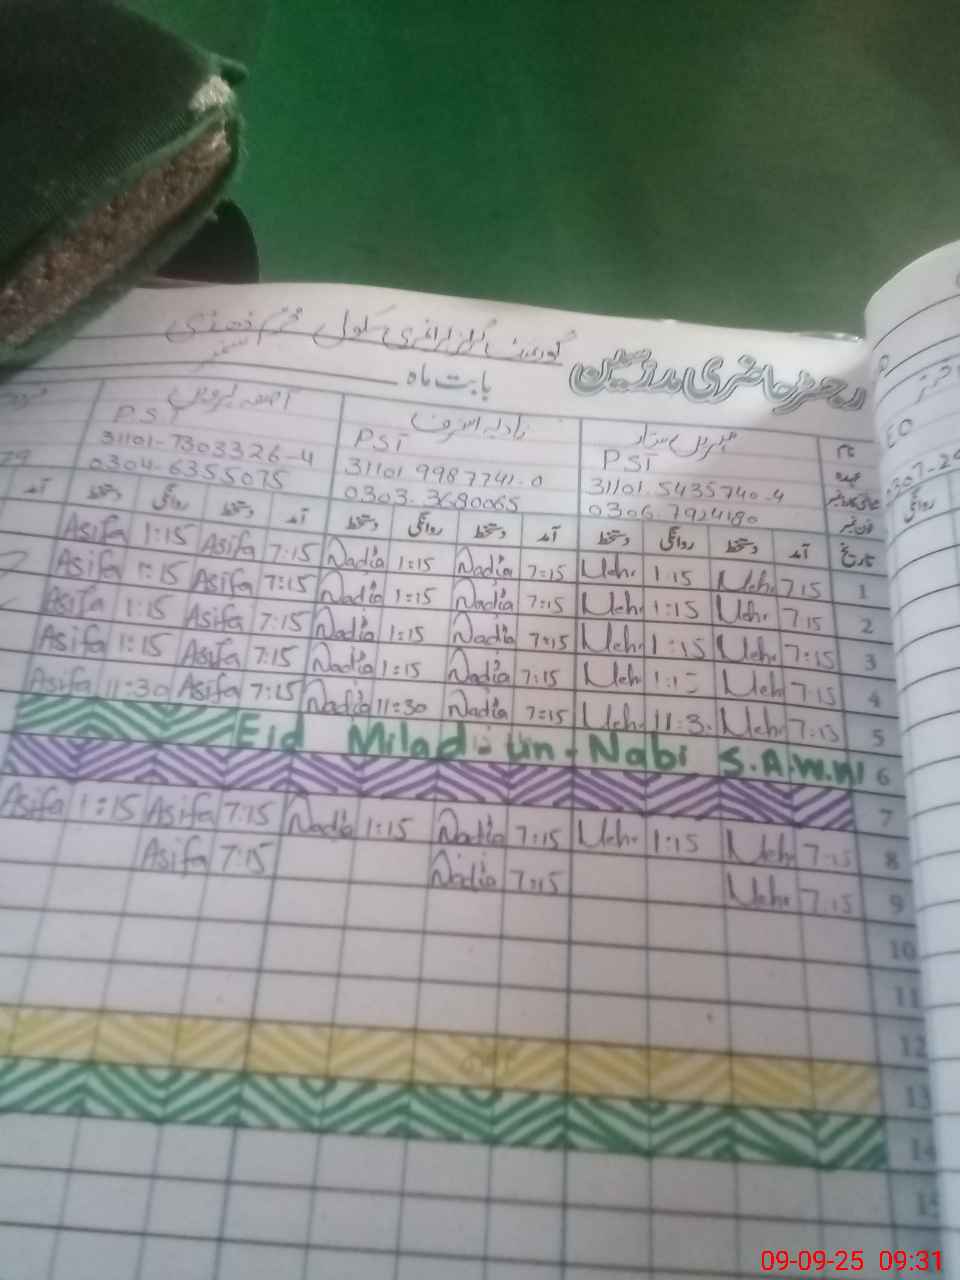 گورنمنٹ گرلز پرائمری سکول
رجسٹر حاضری مدرسین بابت ماہ ستمبر
نام
عہدہ
شناختی کارڈ نمبر
فون نمبر
PST
31101-5435740-4
0306-7924180
نادیہ اشرف
PST
31101-9987741-0
0303-3680065
آصفہ پروین
PST
31101-7303326-4
0304-6355075
تاریخ آمد دستخط روانگی دستخط آمد دستخط روانگی دستخط آمد دستخط روانگی دستخط آمد
1 7:15 Meh. 1:15 Meh. 7:15 Nadia 1:15 Nadia 7:15 Asifa 1:15 Asifa
2 7:15 Meh. 1:15 Meh. 7:15 Nadia 1:15 Nadia 7:15 Asifa 1:15 Asifa
3 7:15 Meh. 1:15 Meh. 7:15 Nadia 1:15 Nadia 7:15 Asifa 1:15 Asifa
4 7:15 Meh. 1:15 Meh. 7:15 Nadia 1:15 Nadia 7:15 Asifa 1:15 Asifa
5 7:15 Meh. 11:3. Meh. 7:15 Nadia 11:30 Nadia 7:15 Asifa 11:30 Asifa
6 Eid Milad-un-Nabi S.A.W.W
7
8 7:15 Meh. 1:15 Meh. 7:15 Nadia 1:15 Nadia 7:15 Asifa 1:15 Asifa
9 7:15 Meh. 7:15 Nadia 7:15 Asifa
10
11
12
13
14
15
EO
0307-29
روانگی
09-09-25 09:31